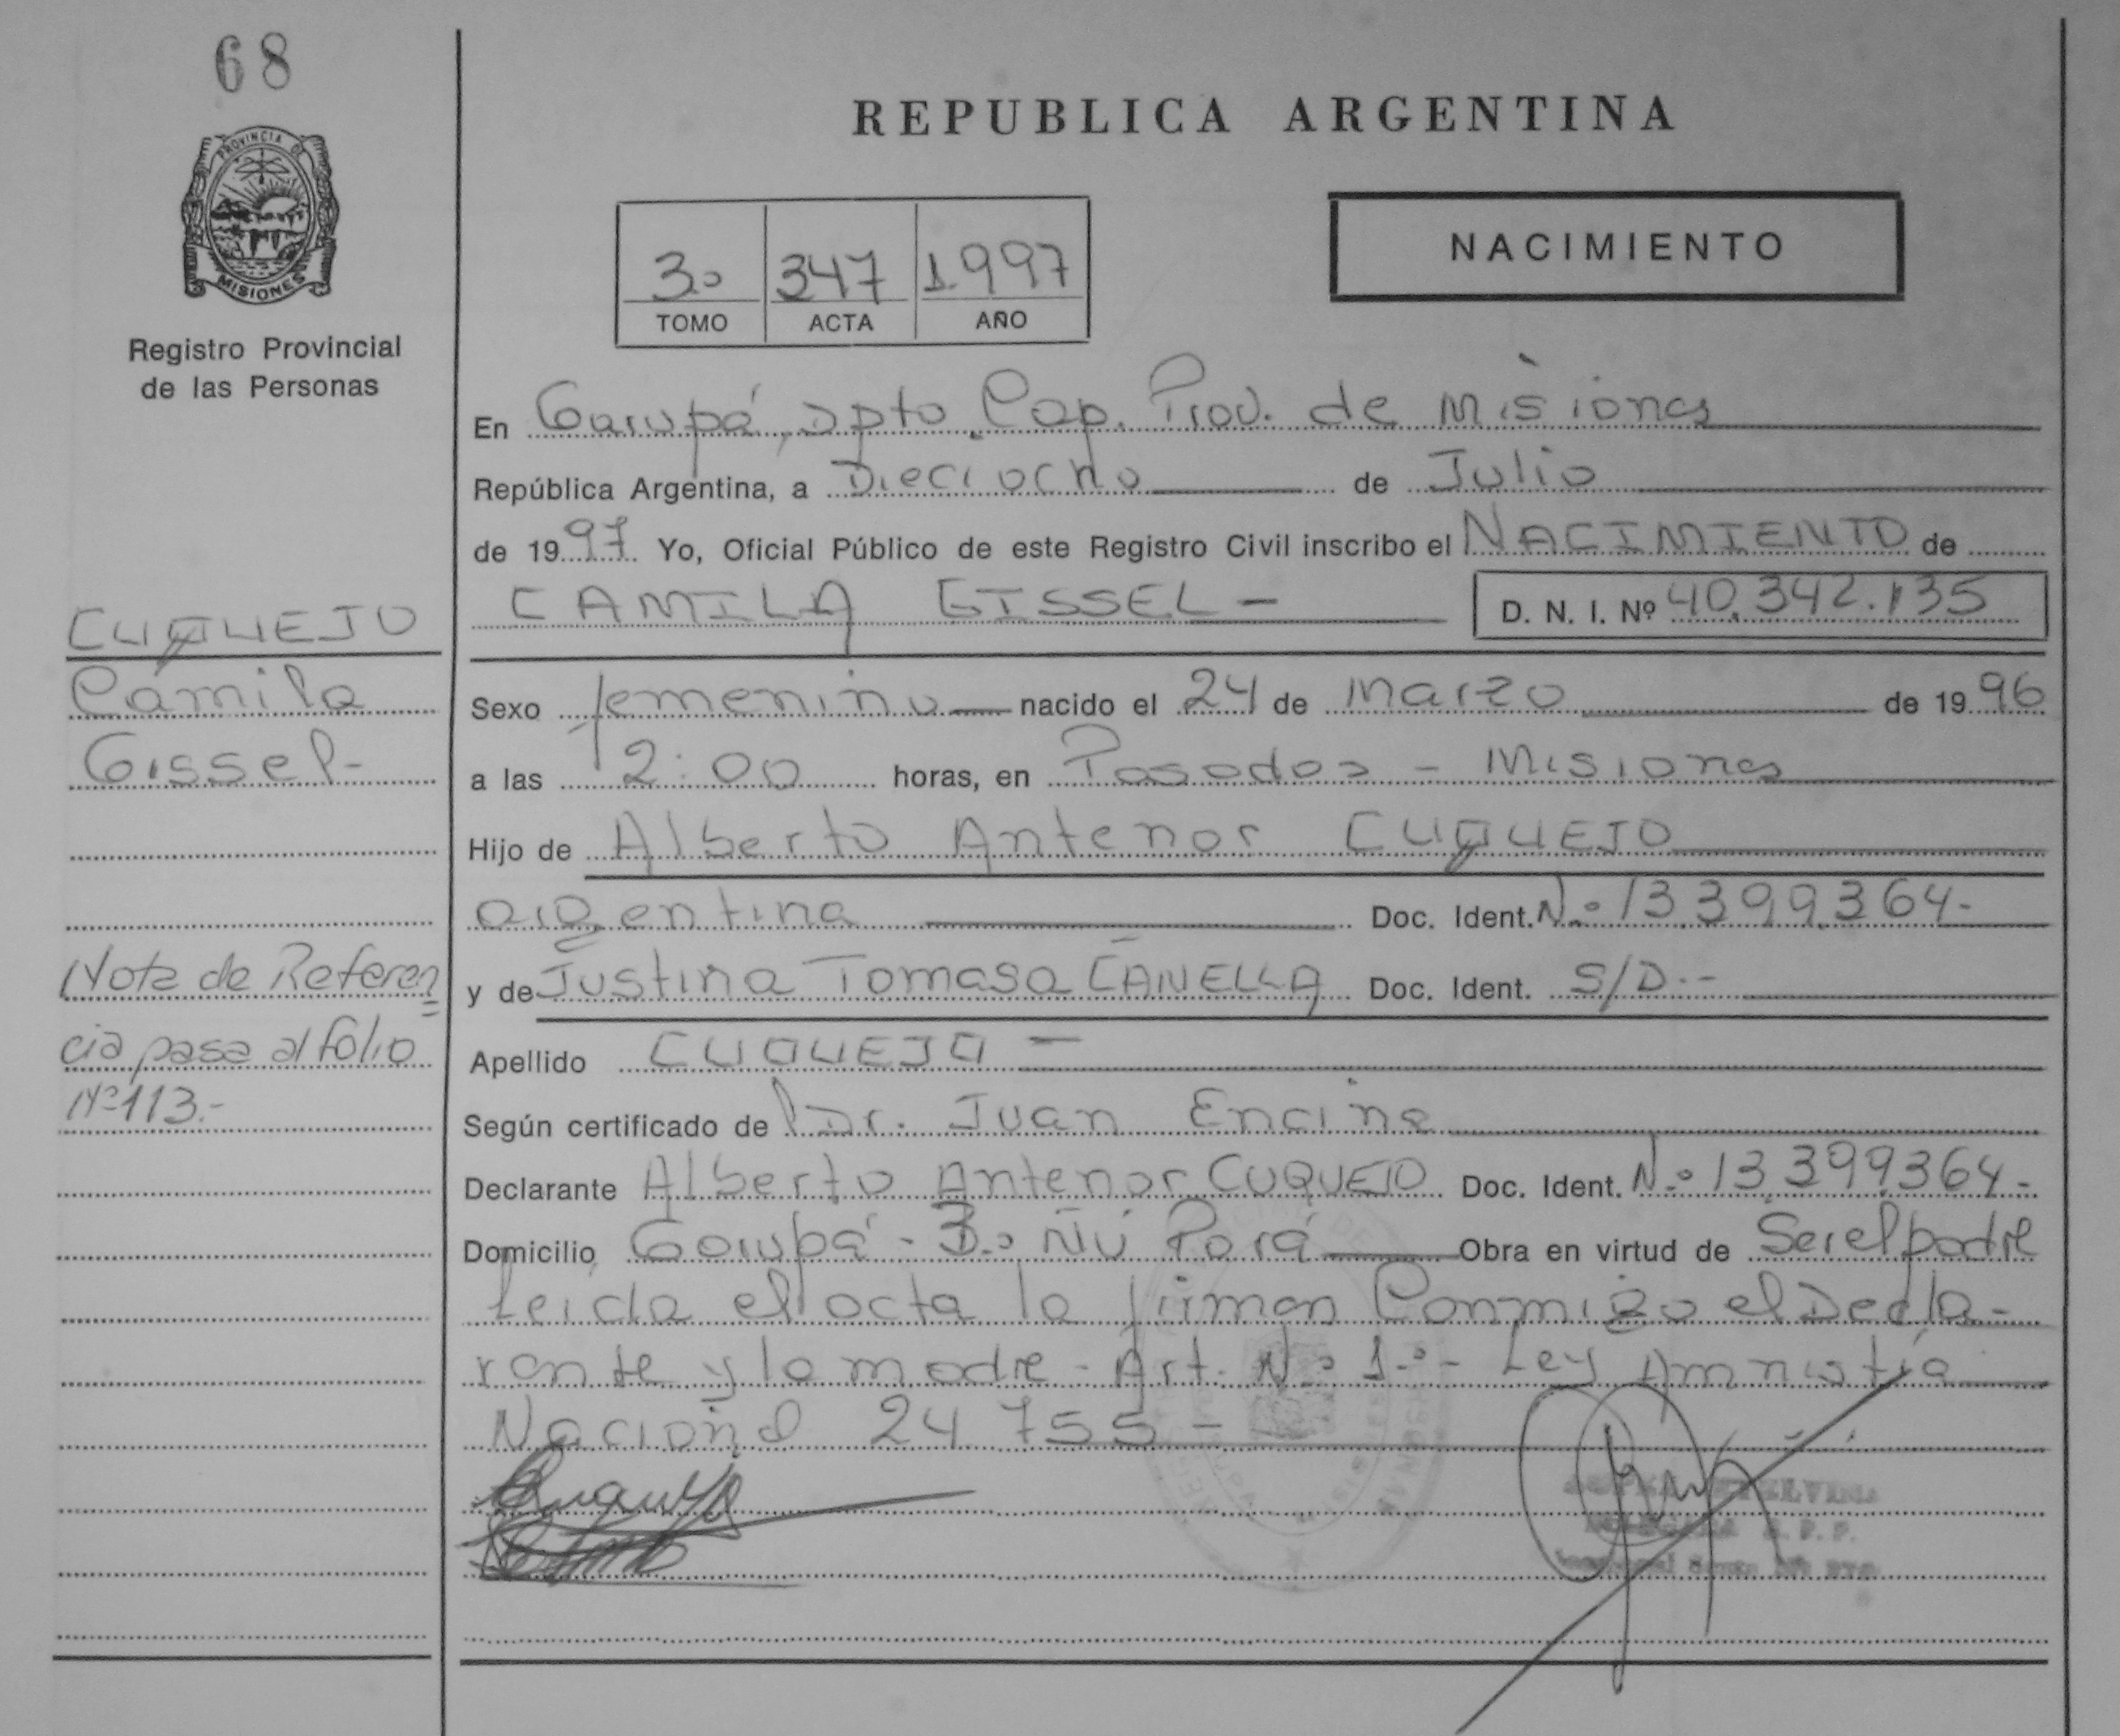 68
PROVINCIA DE
MISIONES
Registro Provincial
de las Personas
REPUBLICA ARGENTINA
3º 347 1.997
TOMO ACTA AÑO
NACIMIENTO
En Garupá, Dpto. Cap. Prov. de Misiones
República Argentina, a Dieciocho de Julio
de 1997 Yo, Oficial Público de este Registro Civil inscribo el NACIMIENTO de
CAMILA GISSEL - D. N. I. Nº 40.342.135
CUQUEJO
Camila
Gissel-
Sexo femenino nacido el 24 de Marzo de 1996
a las 12:00 horas, en Posadas - Misiones
Hijo de Alberto Antenor CUQUEJO
argentina Doc. Ident. Nº 13.399.364-
y de Justina Tomasa CANELLA Doc. Ident. S/D.-
Nota de Referen
cia pasa al folio
Nº 113.-
Apellido CUQUEJO -
Según certificado de Dr. Juan Encina
Declarante Alberto Antenor CUQUEJO Doc. Ident. Nº 13.399.364-
Domicilio Garupá - Bº Ñú Porá Obra en virtud de Ser el padre
Leída el acta la firman Conmigo el Decla-
rante y la madre - Art. Nº 1º - Ley Amnistía
Nacional 24755 -